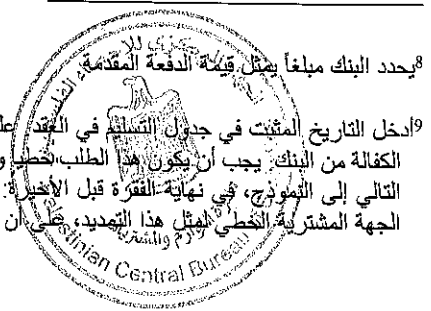 ⁸يحدد البنك مبلغاً يمثل قيمة الدفعة المقدمة
⁹أدخل التاريخ المثبت في جدول التسليم في العقد
الكفالة من البنك يجب أن يكون هذا الطلب خطياً و
التالي إلى النموذج، في نهاية الفقرة قبل الأخيرة:
الجهة المشترية الخطي لمثل هذا التمديد، على أن
Central Bureau